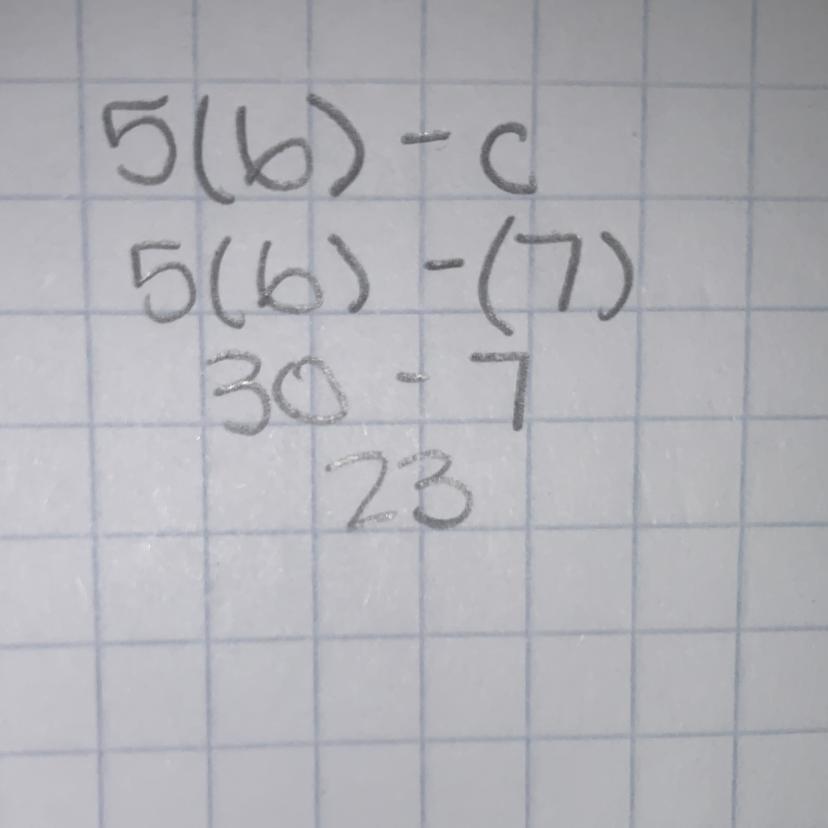 5(b) - c
5(6) - (7)
30 - 7
23